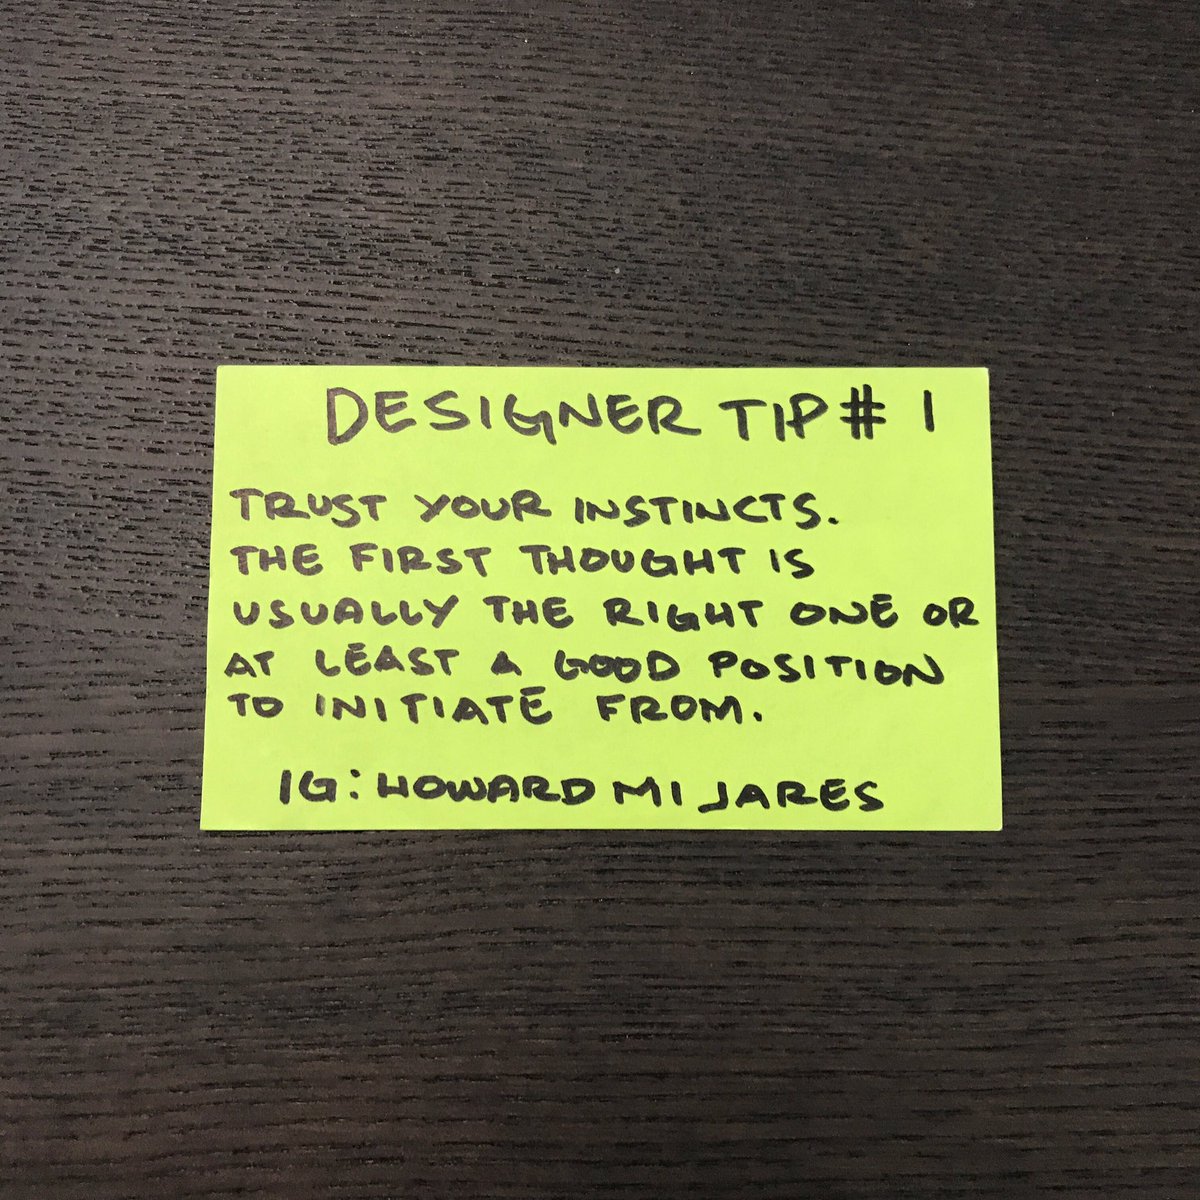 DESIGNER TIP # 1
TRUST YOUR INSTINCTS.
THE FIRST THOUGHT IS
USUALLY THE RIGHT ONE OR
AT LEAST A GOOD POSITION
TO INITIATE FROM.
IG: HOWARD MIJARES